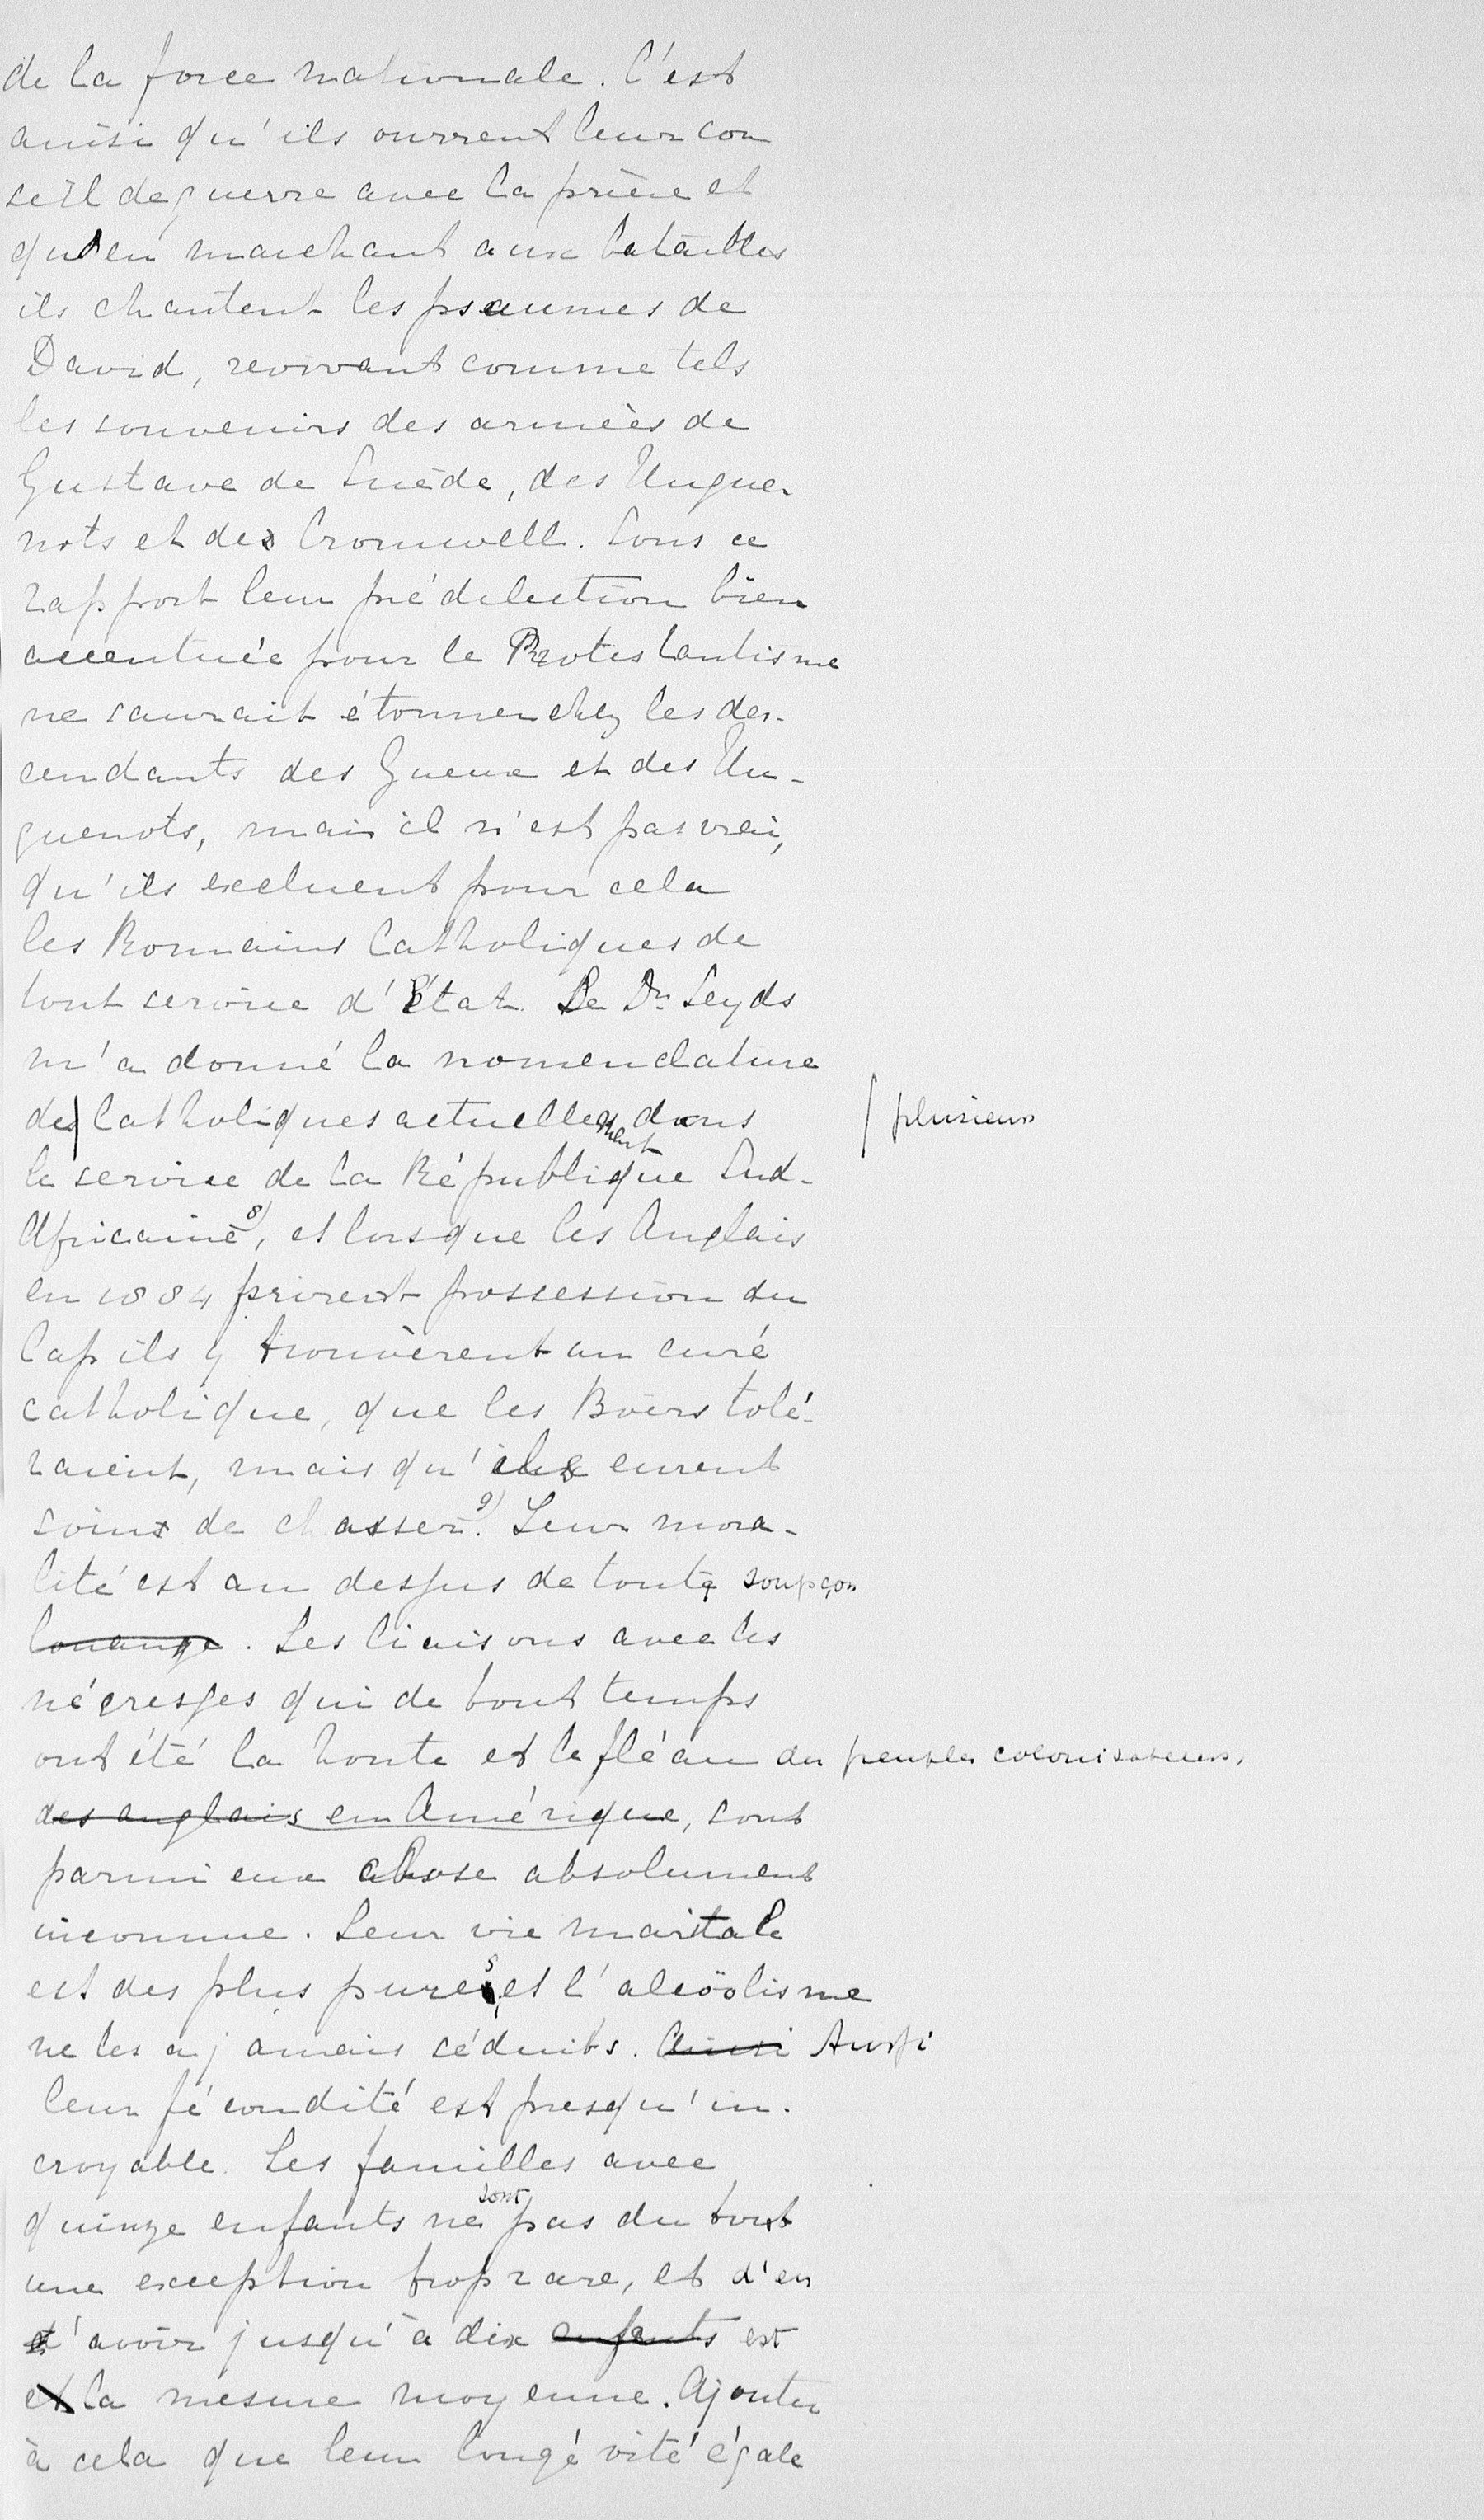 de la force nationale. C'est
ainsi qu'ils ouvrent leur con
seil de guerre avec la prière et
qu'en marchant aux batailles
ils chantent les psaumes de
David, revivant comme tels
les souvenirs des armées de
Gustave de Suède, des Hugue-
nots et de Cromwell. Sous ce
rapport leur prédilection bien
accentuée pour le Protestantisme
ne saurait étonner chez les des-
cendants des Gueux et des Hu-
guenots, mais il n'est pas vrai,
qu'ils excluent pour cela
les Romains Catholiques de
tout service d'État. Le Dr. Leyds
m'a donné la nomenclature
de | Catholiques actuellement dans | plusieurs
le service de la République Sud-
Africaine 8), et lorsque les Anglais
en 1884 prirent possession du
Cap ils y trouvèrent un curé
catholique, que les Boërs tolé-
raient, mais qu'ils eurent
soin de chasser 9). Leur mora-
lité est au dessus de tout soupçon
louange. Les liaisons avec les
négresses qui de tout temps
ont été la honte et le fléau des peuples colonisateurs,
des anglais en Amérique, sont
parmi eux chose absolument
inconnue. Leur vie maritale
est des plus pures, et l'alcoölisme
ne les a jamais séduits. Ainsi Aussi
leur fécondité est presqu'in-
croyable. Les familles avec
quinze enfants ne sont pas du tout
une exception trop rare, et d'en
d'avoir jusqu'à dix enfants est
et la mesure moyenne. Ajoutez
à cela que leur longévité égale